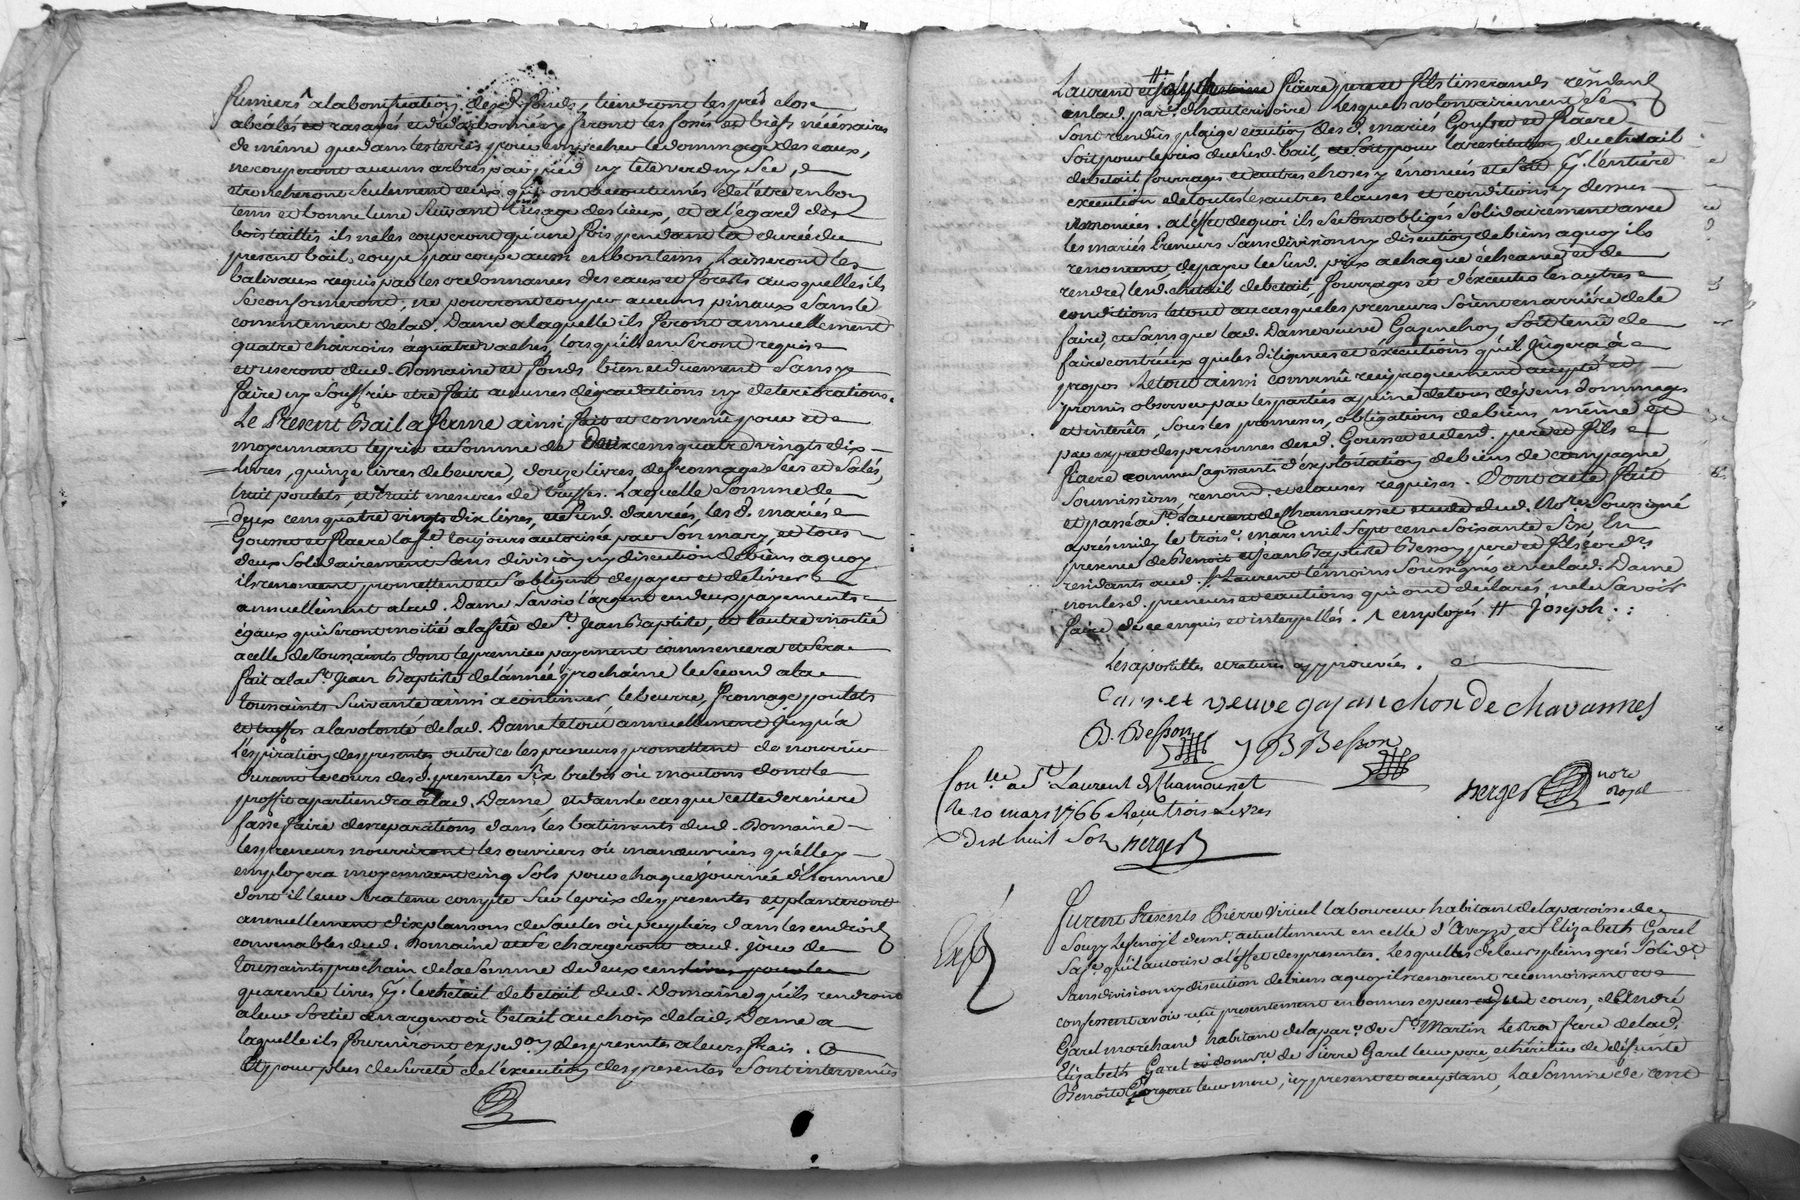 fumiers ^ a la bonification desd. fonds, tiendront les prés clos
abealés et rasayés et d'ardbonnieres feront les fossés et biefs nécéssaires
de même que dans les terres pour empecher le dommage des eaux,
ne couperont aucun arbres par pied ny tete verd ny sec, &
etroncheront seulement ceux qui ont accoutumés de l'être en bon
tems et bonne lune suivant l'usage des lieux, et a l'égard des
bois taillis ils ne les couperont qu'une fois pendant la durée du
present bail, coupe par coupe aussi en bon tems, Laisseront les
balivaux requis par les ordonnances des eaux et forests auxquelles ils
se conformeront, ne pourront couper aucuns pinaux sans le
consentement de lad. Dame a laquelle ils feront annuellement
quatre charroirs à quatre vaches, lorsqu'ils en seront requis
et useront dud. Domaine et fonds bien et duement sans y
faire ny souffrir etre fait aucunes dégradations ny deteriorations.
Le Present Bail a ferme ainsi fait et convenû pour et
moyennant le prix et somme de deux cens quatre vingts dix
Livres, quinze livres de beurre, douze livres de fromage secs et salés,
huit poulets, et huit mesures de truffes. Laquelle somme de
deux cens quatre vingts dix livres, et susd. danrées, les d. mariés
Gousset et Fiaere lad.e toujours autorisée par son mary, et tous
deux solidairement sans division ny discution de biens a quoy
ils renoncent promettent et s'obligent de payer et delivrer
annuellement a lad. Dame savoir l'argent en deux payements
égaux qui seront moitié a la fête de St. Jean Baptiste, et l'autre moitié
a celle de Toussaints dont le premier payement commencera et sera
fait a la St. Jean Baptiste de l'année prochaine le second a la
Toussaints suivante ainsi a continuer, le beurre, fromage, poulets
et truffes a la volonté de lad. Dame le tout annuellement jusqu'a
l'expiration des presentes outre ce les preneurs promettent de nourrir
durant le cours desd. presentes six brebis où moutons dont le
proffit apartiendra à lad. Dame, et dans le cas que cette derniere
fasse faire des reparations dans les batiments dud. Domaine
les preneurs nourriront les ouvriers où manoeuvriers qu'elle y
employera moyennant cinq sols pour chaque journée d'homme
dont il leur sera tenu compte sur le prix des presentes et planteront
annuellement dix plansons de saules où peupliers dans les endroits
convenables dud. Domaine et se chargeront aud. jour de
Toussaints prochain de la somme de deux cens livres pour le
quarente livres pr. le chetail de betail dud. Domaine qu'ils rendront
a leur sortie en argent où betail au choix de lad. Dame a
laquelle ils fourniront exped.on des presentes a leurs frais.
Et pour plus de sureté de l'éxecution des presentes sont intervenûs
Laurent et # Fiaere pere et fils tisserands résidents
en lad. par.e d'hauterivoire Lesquels volontairement se
sont rendûs plaige caution desd. mariés Gousset et Fiaere
soit pour le prix du susd. bail, et soit pour la restitution du chetail
de betail fourrages et autres choses y énoncées et soit pr. l'entiere
execution de toutes les autres clauses et conditions cy dessus
énoncées. a l'effet de quoi ils se sont obligés solidairement avec
les mariés Preneurs sans division ny discution de biens a quoy ils
renoncent, de payer le susd. prix a chaque écheance et de
rendre led. chetail de betail, fourrages et d'éxecuter les autres
conditions le tout au cas que les preneurs soient en arriére de le
faire, et sans que lad. Dame veuve Gajanchon soit tenüe de
faire contr'eux que les diligences et éxecutions qu'il jugera à
propos Le tout ainsi convenû reciproquement accepté et
promis observer par les parties a peine de tous dépens dommages
et interêts, sous les promesses, obligations de biens, même et
par exprès des personnes desd. Gousset et desd. pere et fils
Fiaere comme s'agissant d'exploitation de biens de campagne,
soumissions, renond. et clauses requises. Dont acte fait
et passé a St. Laurent de Chamousset etude dud. No.re soussigné
aprés midy le trois.e mars mil sept cens soixante six En
presence de Benoit et Jean Baptiste Besson pere et fils cord.rs
residants aud. St. Laurent temoins soussignés avec lad. Dame
non lesd. preneurs et cautions qui ont déclarés ne le savoir
faire de ce enquis et interpellés. ^ employés # Joseph .:
Les apostilles et ratures approuvées.
Carret veuve gajanchon de chavannes
B. Besson J B Besson
Berger nore royal
Con.lle a St. Laurent de Chamousset
le 10 mars 1766 Recu trois Livres
Dix huit Sols Berger
Exp
Furent Presents Pierre Viricel laboureur habitant de la paroisse de
Souzy Lesmoijl demt. actuellement en celle d'Aveyze et Elizabeth Garel
sa fe. qu'il autorise a l'effet des presentes. Lesquelles de leurs pleins gré solid.t
sans division ny discution de biens a quoy ils renoncent reconnoissent et
confessent avoir reçû presentement en bonnes especes cours, d'André
Garel marchand habitant de la par.e de St. Martin Lestra frere de lad.
Elizabeth Garel de Pierre Garel leur pere et héritier de défunte
Benoite leur mere, icy present et acceptant, La somme de cent